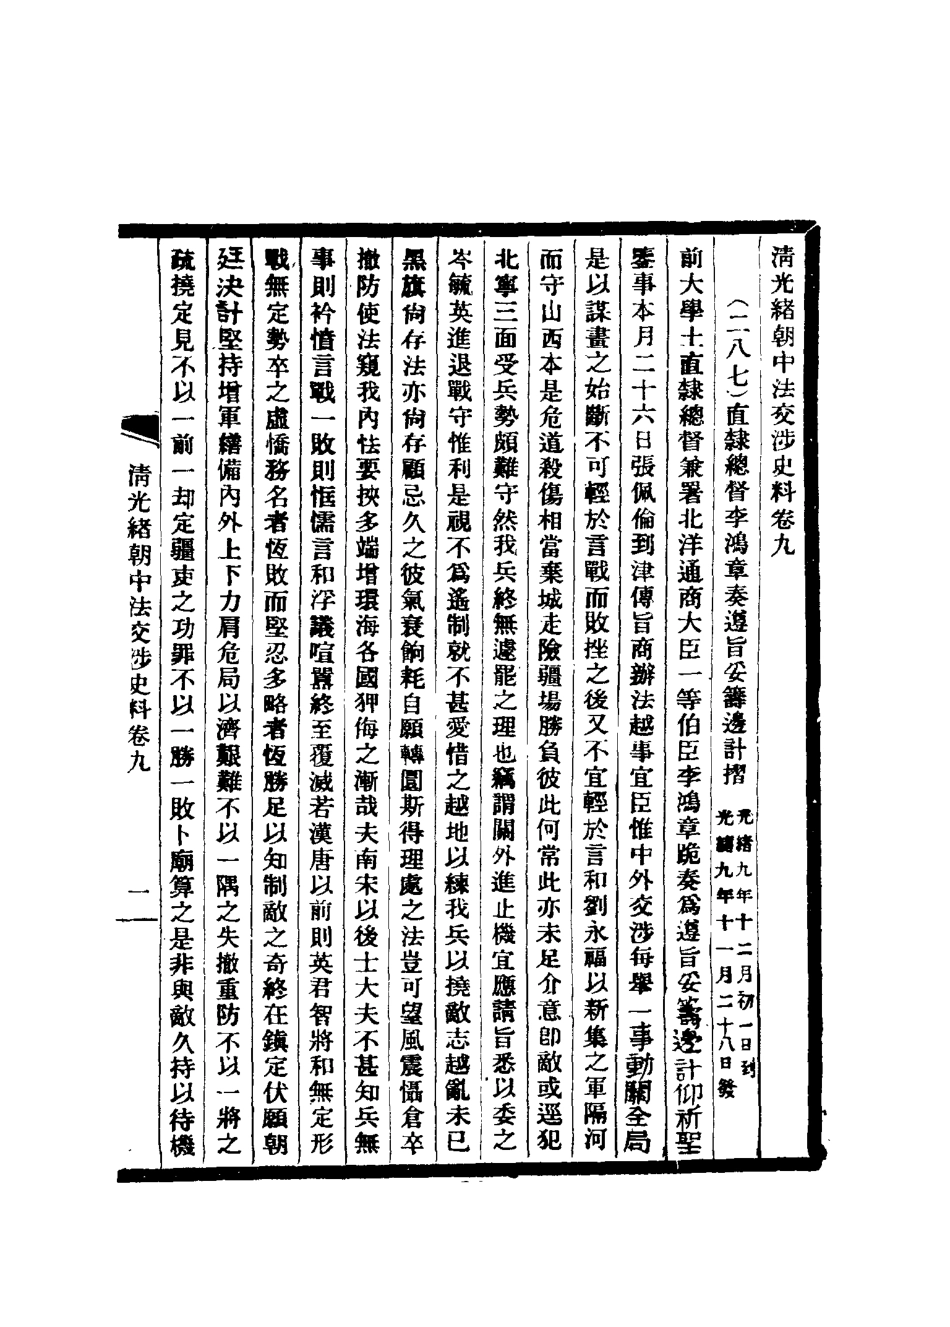 清光緒朝中法交涉史料卷九
（二八七）直隸總督李鴻章奏遵旨妥籌邊計摺
光緒九年十二月初一日到
光緒九年十一月二十八日發
前大學士直隸總督兼署北洋通商大臣一等伯臣李鴻章跪奏爲遵旨妥籌邊計仰祈聖
鑒事本月二十六日張佩倫到津傳旨商辦法越事宜臣惟中外交涉每舉一事動關全局
是以謀畫之始斷不可輕於言戰而敗挫之後又不宜輕於言和劉永福以新集之軍隔河
而守山西本是危道殺傷相當棄城走險疆場勝負彼此何常此亦未足介意卽敵或逕犯
北寧三面受兵勢頗難守然我兵終無遽罷之理也竊謂關外進止機宜應請旨悉以委之
岑毓英進退戰守惟利是視不爲遙制就不甚愛惜之越地以練我兵以撓敵志越亂未已
黑旗尙存法亦尙存顧忌久之彼氣衰餉耗自願轉圜斯得理處之法豈可望風震懾倉卒
撤防使法窺我內怯要挾多端增環海各國狎侮之漸哉夫南宋以後士大夫不甚知兵無
事則衿憤言戰一敗則恇懦言和浮議喧囂終至覆滅若漢唐以前則英君智將和無定形
戰無定勢卒之虛憍務名者恆敗而堅忍多略者恆勝足以知制敵之奇終在鎮定伏願朝
廷決計堅持增軍繕備內外上下力肩危局以濟艱難不以一隅之失撤重防不以一將之
疏撓定見不以一前一却定疆吏之功罪不以一勝一敗卜廟算之是非與敵久持以待機
清光緒朝中法交涉史料卷九
一